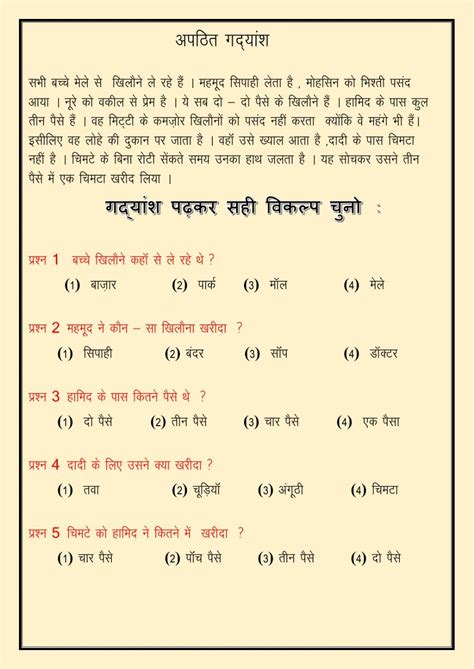 अपठित गद्यांश
सभी बच्चे मेले से खिलौने ले रहे हैं । महमूद सिपाही लेता है , मोहसिन को भिश्ती पसंद
आया । नूरे को वकील से प्रेम है । ये सब दो – दो पैसे के खिलौने हैं । हामिद के पास कुल
तीन पैसे हैं । वह मिट्टी के कमज़ोर खिलौनों को पसंद नहीं करता क्योंकि वे महंगे भी हैं।
इसीलिए वह लोहे की दुकान पर जाता है । वहाॅ उसे ख्याल आता है ,दादी के पास चिमटा
नहीं है । चिमटे के बिना रोटी सेंकते समय उनका हाथ जलता है । यह सोचकर उसने तीन
पैसे में एक चिमटा खरीद लिया ।
गद्यांश पढ़कर सही विकल्प चुनो :
प्रश्न 1 बच्चे खिलौने कहाॅ से ले रहे थे ?
(1) बाज़ार (2) पार्क (3) माॅल (4) मेले
प्रश्न 2 महमूद ने कौन – सा खिलौना खरीदा ?
(1) सिपाही (2) बंदर (3) साॅप (4) डाॅक्टर
प्रश्न 3 हामिद के पास कितने पैसे थे ?
(1) दो पैसे (2) तीन पैसे (3) चार पैसे (4) एक पैसा
प्रश्न 4 दादी के लिए उसने क्या खरीदा ?
(1) तवा (2) चूड़ियाॅ (3) अंगूठी (4) चिमटा
प्रश्न 5 चिमटे को हामिद ने कितने में खरीदा ?
(1) चार पैसे (2) पाॅच पैसे (3) तीन पैसे (4) दो पैसे